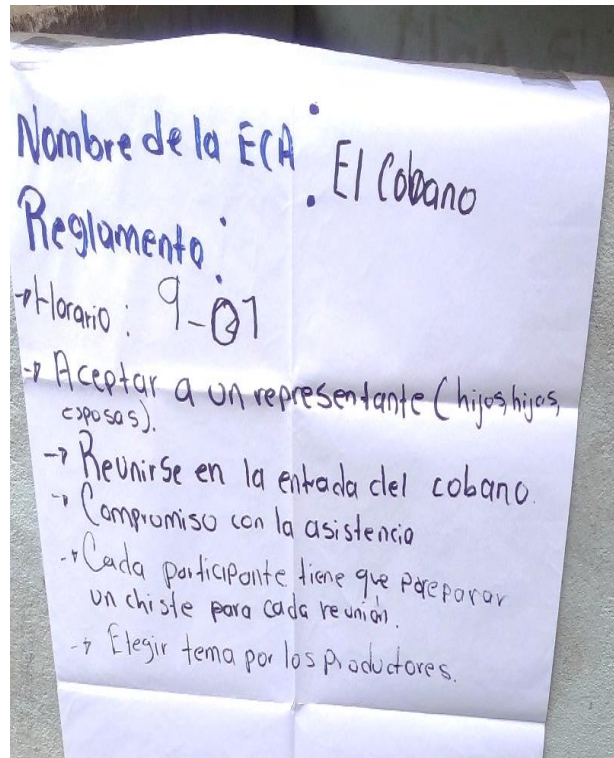 Nombre de la ECA: El Cobano
Reglamento:
→ Horario: 9-01
→ Aceptar a un representante (hijos, hijas,
esposas).
→ Reunirse en la entrada del cobano.
→ Compromiso con la asistencia
→ Cada participante tiene que preparar
un chiste para cada reunión.
→ Elegir tema por los productores.